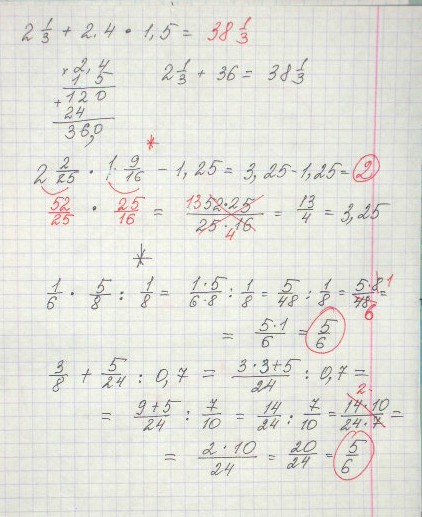 2 1/3 + 2,4 • 1,5 = 38 1/3
× 2,4     2 1/3 + 36 = 38 1/3
1 5
+ 120
24
36,0
*
2 2/25 • 1 9/16 − 1,25 = 3,25 − 1,25 = 2
52/25 • 25/16 = 13 52 • 25 / 25 • 16 4 = 13/4 = 3,25
*
1/6 • 5/8 : 1/8 = 1•5/6•8 : 1/8 = 5/48 : 1/8 = 5•8 1/48 6 =
= 5•1/6 = 5/6
3/8 + 5/24 : 0,7 = 3•3+5/24 : 0,7 =
= 9+5/24 : 7/10 = 14/24 : 7/10 = 2 14•10/24•7 =
= 2•10/24 = 20/24 = 5/6